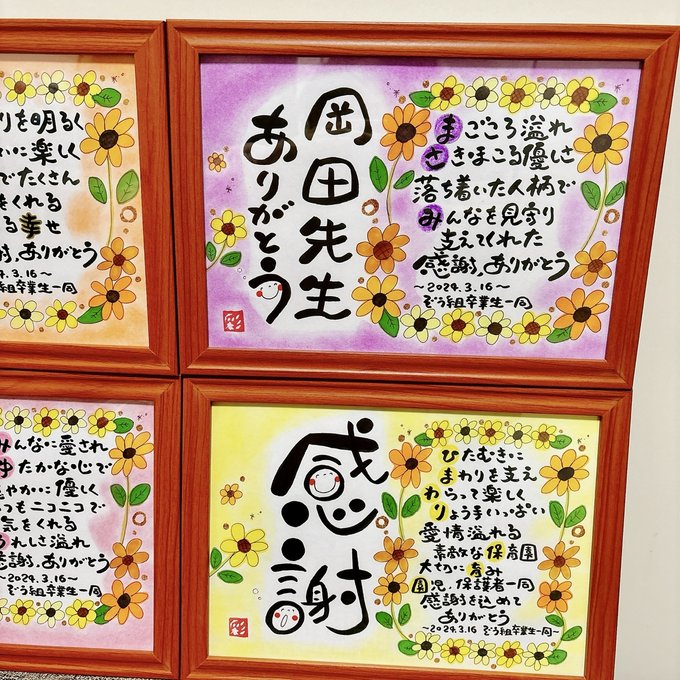 りを明るく
いに楽しく
でたくさん
をくれる
る幸せ
謝、ありがとう
24.3.16~
う組卒業生一同
岡田先生
ありがとう
まごころ溢れ
さきほこる優しさ
落ち着いた人柄で
みんなを見守り
支えてくれた
感謝、ありがとう
~2024.3.16~
ぞう組卒業生一同
みんなに愛され
ゆたかな心で
やかに優しく
つもニコニコで
気をくれる
うれしさ溢れ
感謝、ありがとう
~2024.3.16~
ぞう組卒業生一同
感謝
ひたむきに
まわりを支え
わらって楽しく
りょう手いっぱい
愛情溢れる
素敵な保育園
大切に育み
園児、保護者一同
感謝を込めて
ありがとう
~2024.3.16 ぞう組卒業生一同~